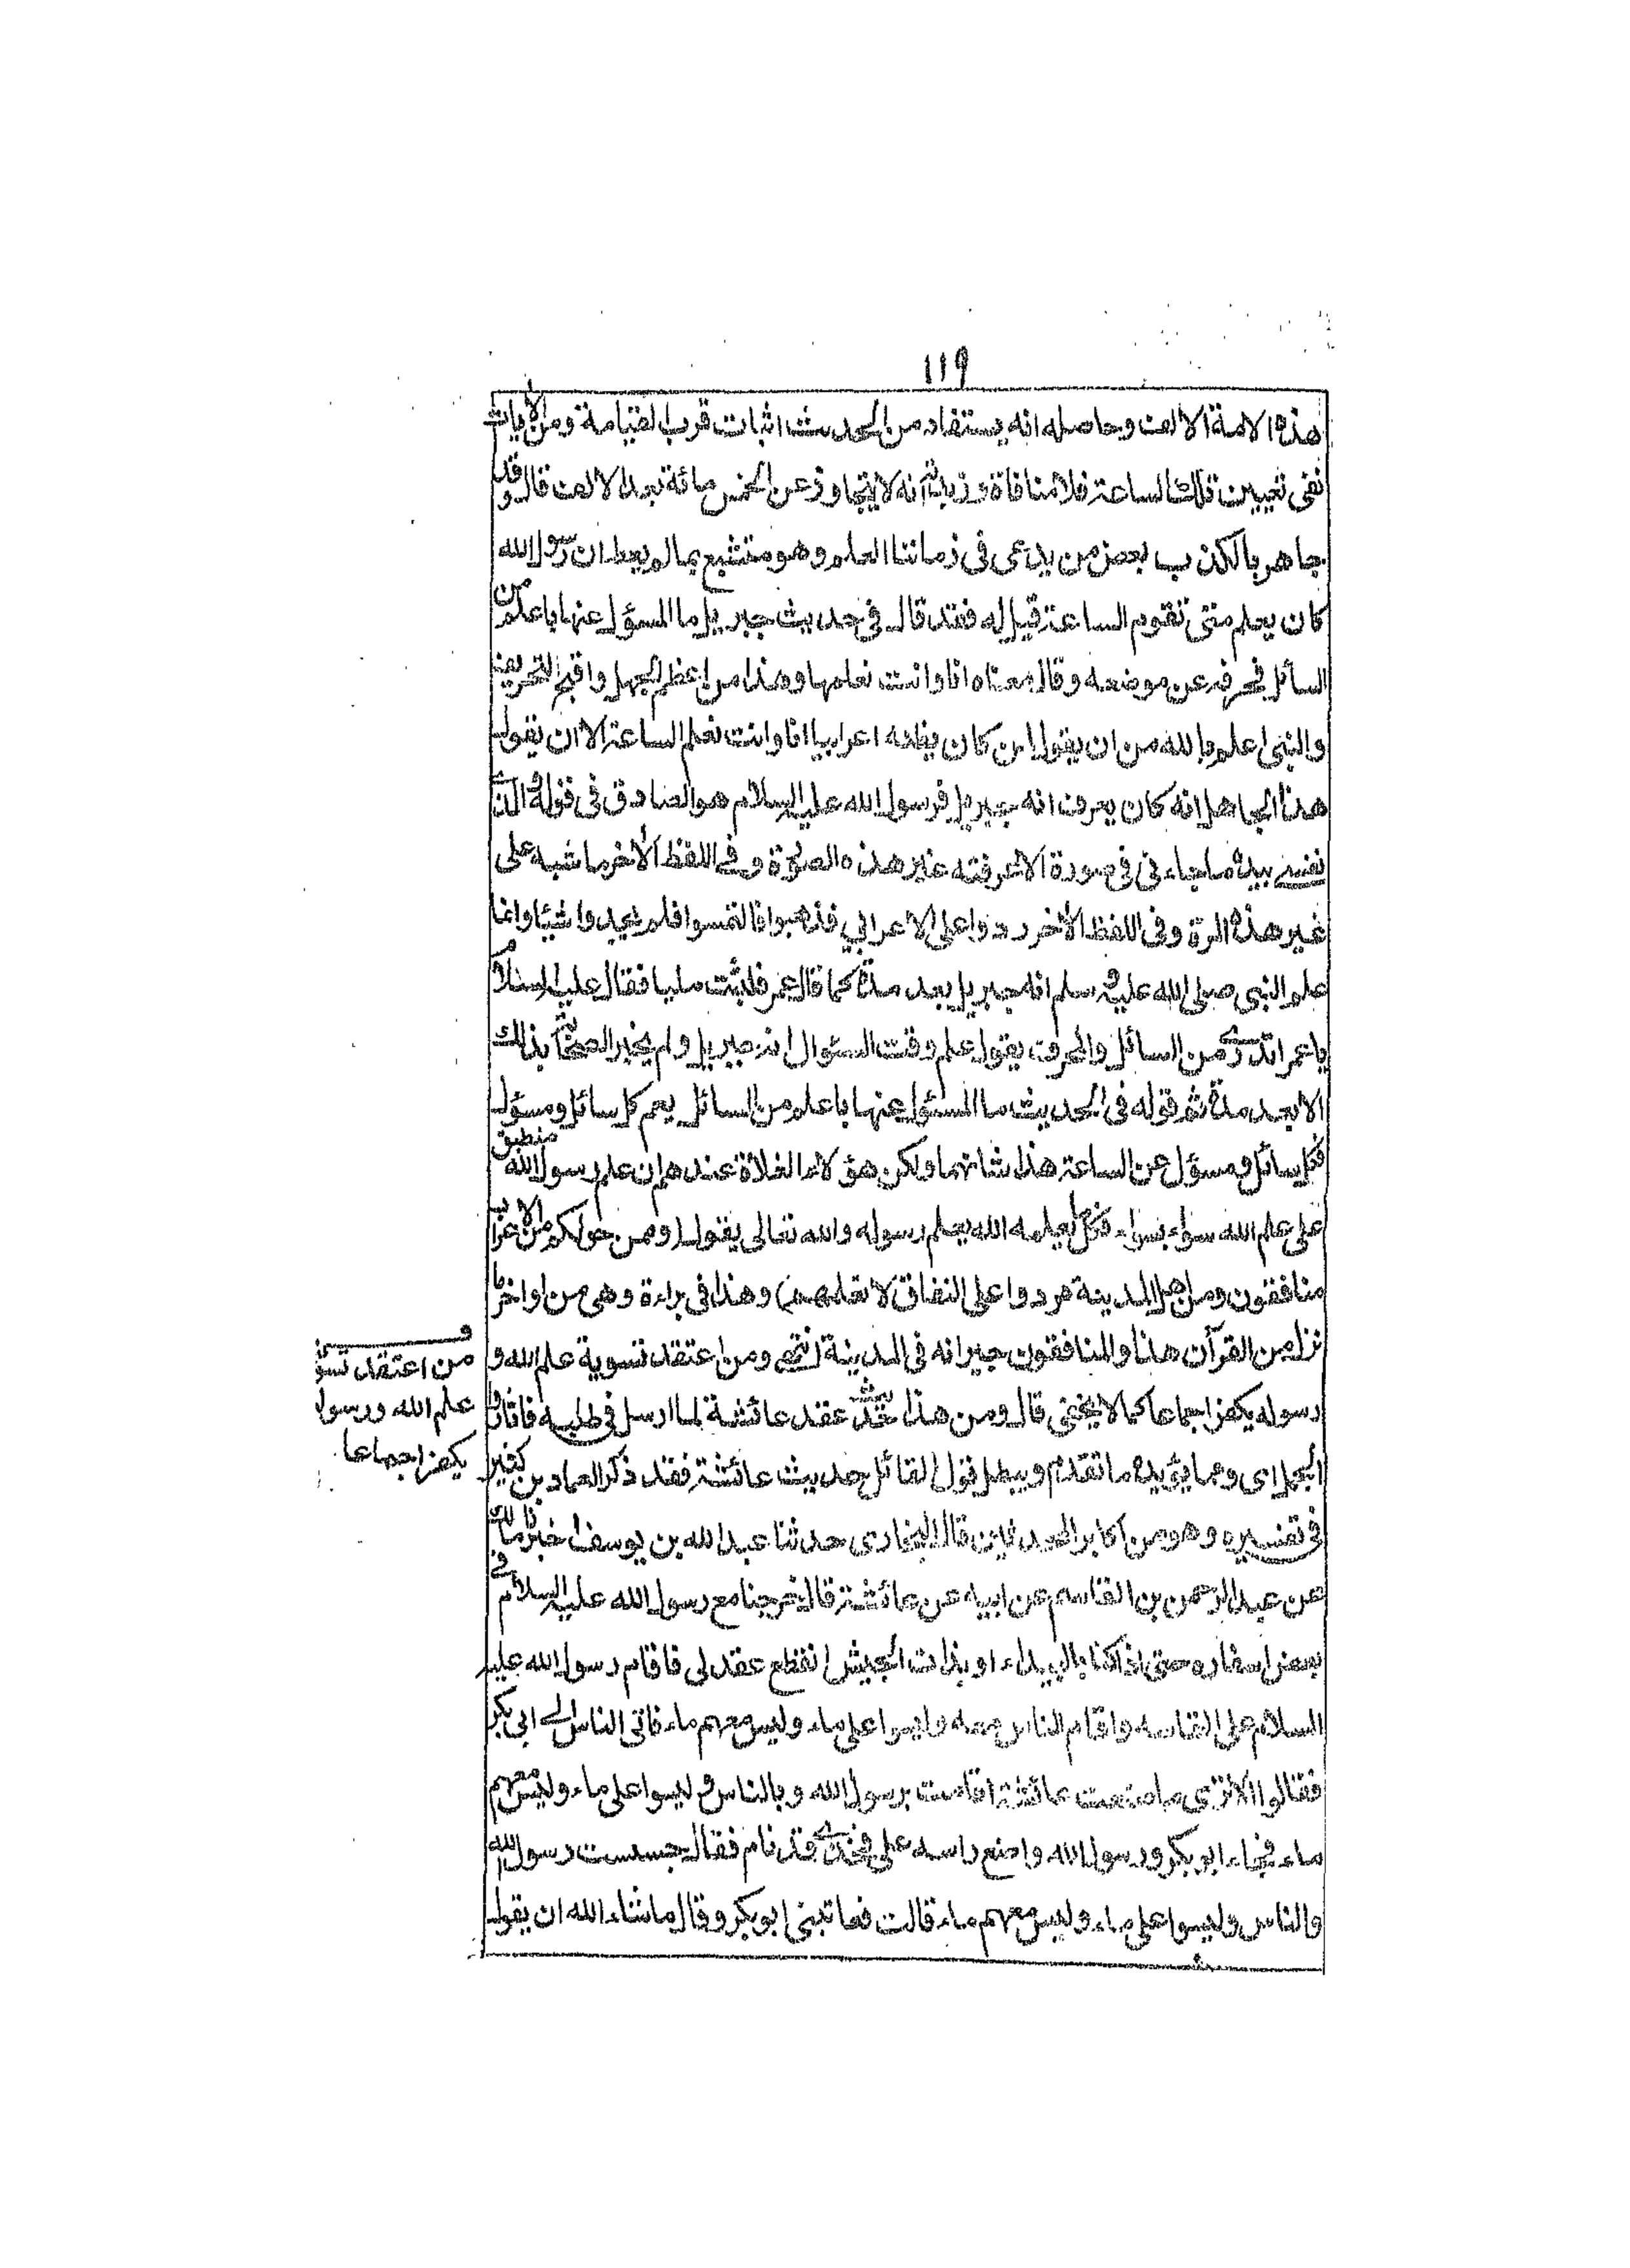 ١١٩
هذه الامة الالف وحاصله انه يستفاد من الحديث اثبات قرب القيامة ومن الآيات
نفى تعيين تلك الساعة فلا منافاة وزبدته انه لا يتجاوز عن الخمس مائة بعد الالف قال وقد
جاهر بالكذب بعض من يدعى فى زماننا العلم وهو متشبع بمالم يعط ان رسول الله
كان يعلم متى تقوم الساعة قيل له فقد قال فى حديث جبريل ما المسؤل عنها باعلم من
السائل فحرفه عن موضعه وقال معناه انا وانت نعلمها وهذا من اعظم الجهل واقبح التحريف
والنبى اعلم بالله من ان يقول لمن كان يظنه اعرابيا انا وانت نعلم الساعة الا ان يقول
هذا الجاهل انه كان يعرف انه جبريل فرسول الله عليه السلام هو الصادق فى قوله والذى
نفسى بيده ما جاءنى فى صورة الا عرفته غير هذه الصورة وفى اللفظ الآخر ما شبه على
غير هذه المرة وفى اللفظ الآخر ردوا على الاعرابي فذهبوا فالتمسوا فلم يجدوا شيئا وانما
علم النبى صلى الله عليه وسلم انه جبريل بعد مدة كما قال عمر فلبثت مليا فقال عليه السلام
يا عمر اتدرى من السائل والمحرف يقول علم وقت السئوال انه جبريل ولم يخبر الصحابة بذلك
الا بعد مدة ثم قوله فى الحديث ما المسئول عنها باعلم من السائل يعم كل سائل ومسؤل
فكل سائل ومسؤل عن الساعة هذا شانهما ولكن هؤلاء الغلاة عندهم ان علم رسول الله منطبق
على علم الله سواء بسواء فكل ما يعلمه الله يعلم رسوله والله تعالى يقول (وممن حولكم من الاعراب
منافقون ومن اهل المدينة مردوا على النفاق لا تعلمهم) وهذا فى براءة وهى من اواخر ما
نزل من القرآن هذا والمنافقون جيرانه فى المدينة انتهى ومن اعتقد تسوية علم الله و
رسوله يكفر اجماعا كما لا يخفى قال ومن هذا حديث عقد عائشة لما ارسل فى طلبه فاثاروا
الجمل اى ومما يؤيده ما تقدم ويبطل قول القائل حديث عائشة فقد ذكر العماد بن كثير
فى تفسيره وهو من اكابر المحدثين قال البخارى حدثنا عبد الله بن يوسف اخبرنا مالك
عن عبد الرحمن بن القاسم عن ابيه عن عائشة قال خرجنا مع رسول الله عليه السلام فى
بعض اسفاره حتى اذا كنا بالبيداء او بذات الجيش انقطع عقد لى فاقام رسول الله عليه
السلام على التماسه واقام الناس معه وليسوا على ماء وليس معهم ماء فاتى الناس الى ابى بكر
فقالوا الا ترى ما صنعت عائشة اقامت برسول الله وبالناس وليسوا على ماء وليس معهم
ماء فجاء ابو بكر ورسول الله واضع راسه على فخذى قد نام فقال حبست رسول الله
والناس وليسوا على ماء وليس معهم ماء قالت فعاتبنى ابو بكر وقال ما شاء الله ان يقول
و
من اعتقد
علم الله ورسول
يكفر اجماعا